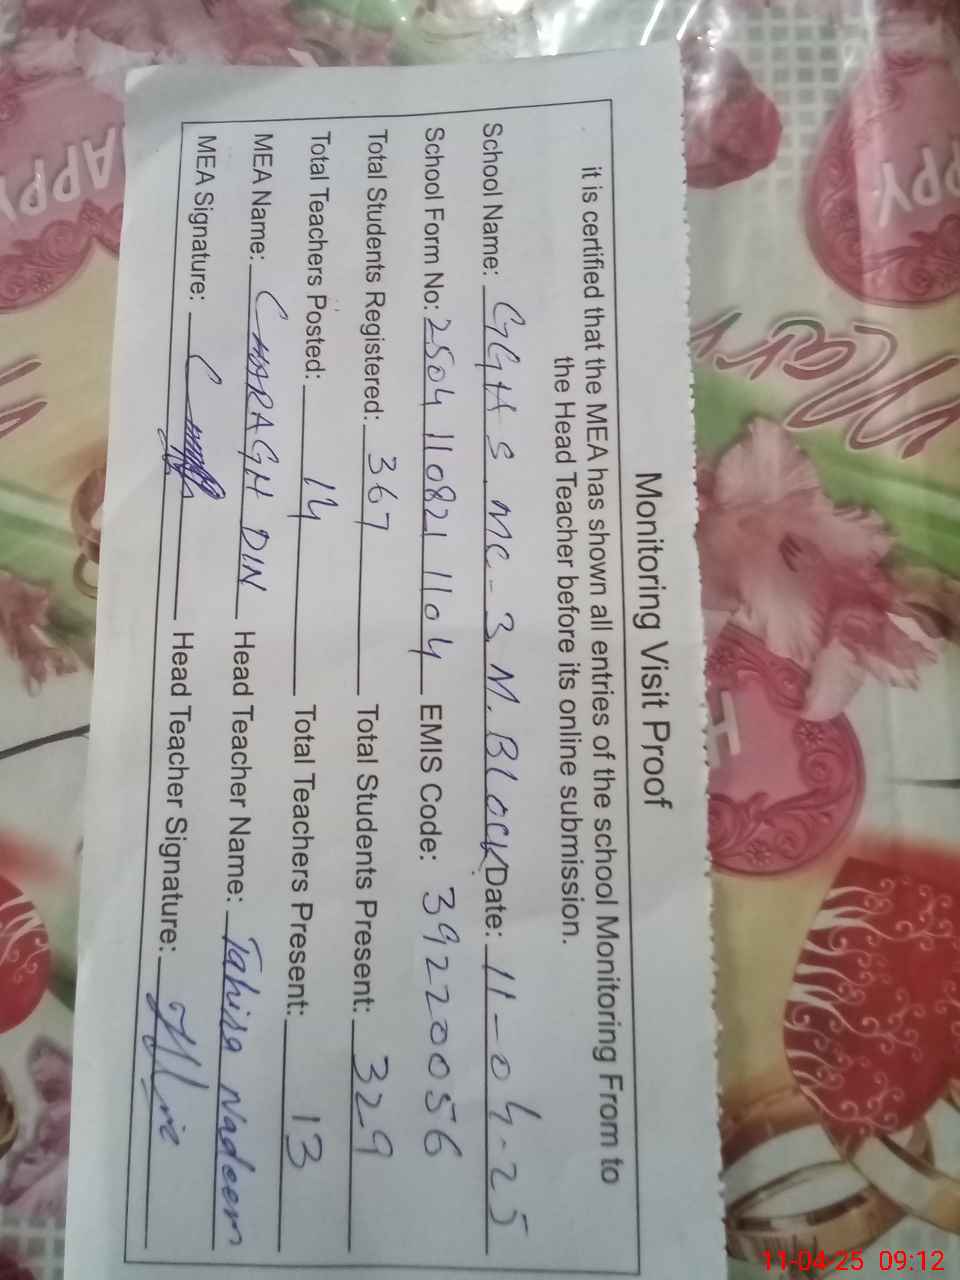 Monitoring Visit Proof
it is certified that the MEA has shown all entries of the school Monitoring From to
the Head Teacher before its online submission.
School Name: GGHS MC-3 M. BLOCK Date: 11-04-25
School Form No: 2504110821 1104 EMIS Code: 39220056
Total Students Registered: 367 Total Students Present: 329
Total Teachers Posted: 14 Total Teachers Present: 13
MEA Name: CHARAGH DIN Head Teacher Name: Tahira Nadeem
MEA Signature: Head Teacher Signature:
11-04-25 09:12